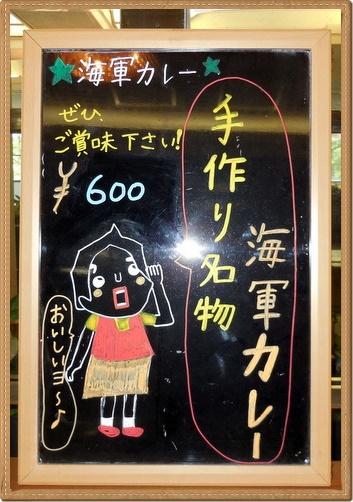 ★海軍カレー★
ぜひ、
ご賞味下さい!
¥600
手作り名物
海軍カレー
おいしいヨ～♪